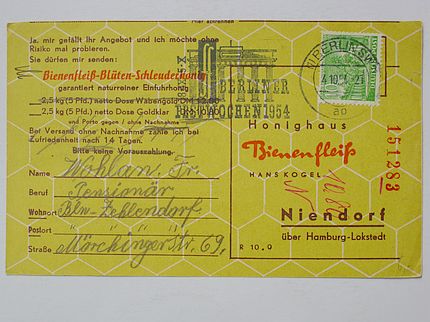 Hier abtrennen
Ja, mir gefällt Ihr Angebot und ich möchte ohne
Risiko mal probieren.
Sie dürfen mir senden:
Bienenfleiß-Blüten-Schleuderhonig
garantiert naturreiner Einfuhrhonig
2,5 kg (5 Pfd.) netto Dose Wabengold DM 12.80
2,5 kg (5 Pfd.) netto Dose Goldklar
und Porto gegen / ohne Nachnahme
Bei Versand ohne Nachnahme zahle ich bei
Zufriedenheit nach 14 Tagen.
Bitte keine Vorauszahlung.
Name Wohlan, Fr.
Beruf Pensionär
Wohnort Bln-Zehlendorf
Postort " " "
Straße Märchinger Str. 69,
BERLINER
FESTWOCHEN 1954
BERLIN SW
4.10.54
ao
Honighaus
Bienenfleiß
HANS KOGEL
Niendorf
über Hamburg-Lokstedt
R 10.9
151283